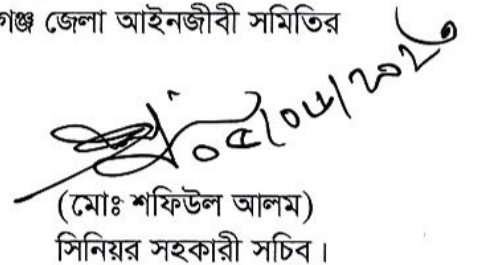 গঞ্জ জেলা আইনজীবী সমিতির
(মোঃ শফিউল আলম)
সিনিয়র সহকারী সচিব।